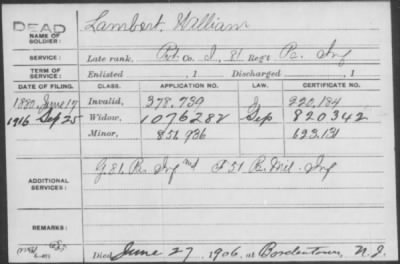 DEAD
NAME OF SOLDIER: Lambert, William
SERVICE: Late rank, Pvt. Co. I, 81 Reg't Pa. Inf
TERM OF SERVICE: Enlisted , 1 Discharged , 1
DATE OF FILING. CLASS. APPLICATION NO. LAW. CERTIFICATE NO.
1880, June 17 Invalid, 378,739 220,184
1916 Sep 25 Widow, 1076282 Sep 820342
Minor, 851,936 623,131
ADDITIONAL SERVICES: G 81 Pa. Inf and F 51 Pa. Mil. Inf
REMARKS:
Died June 27, 1906, at Bordentown, N.J.